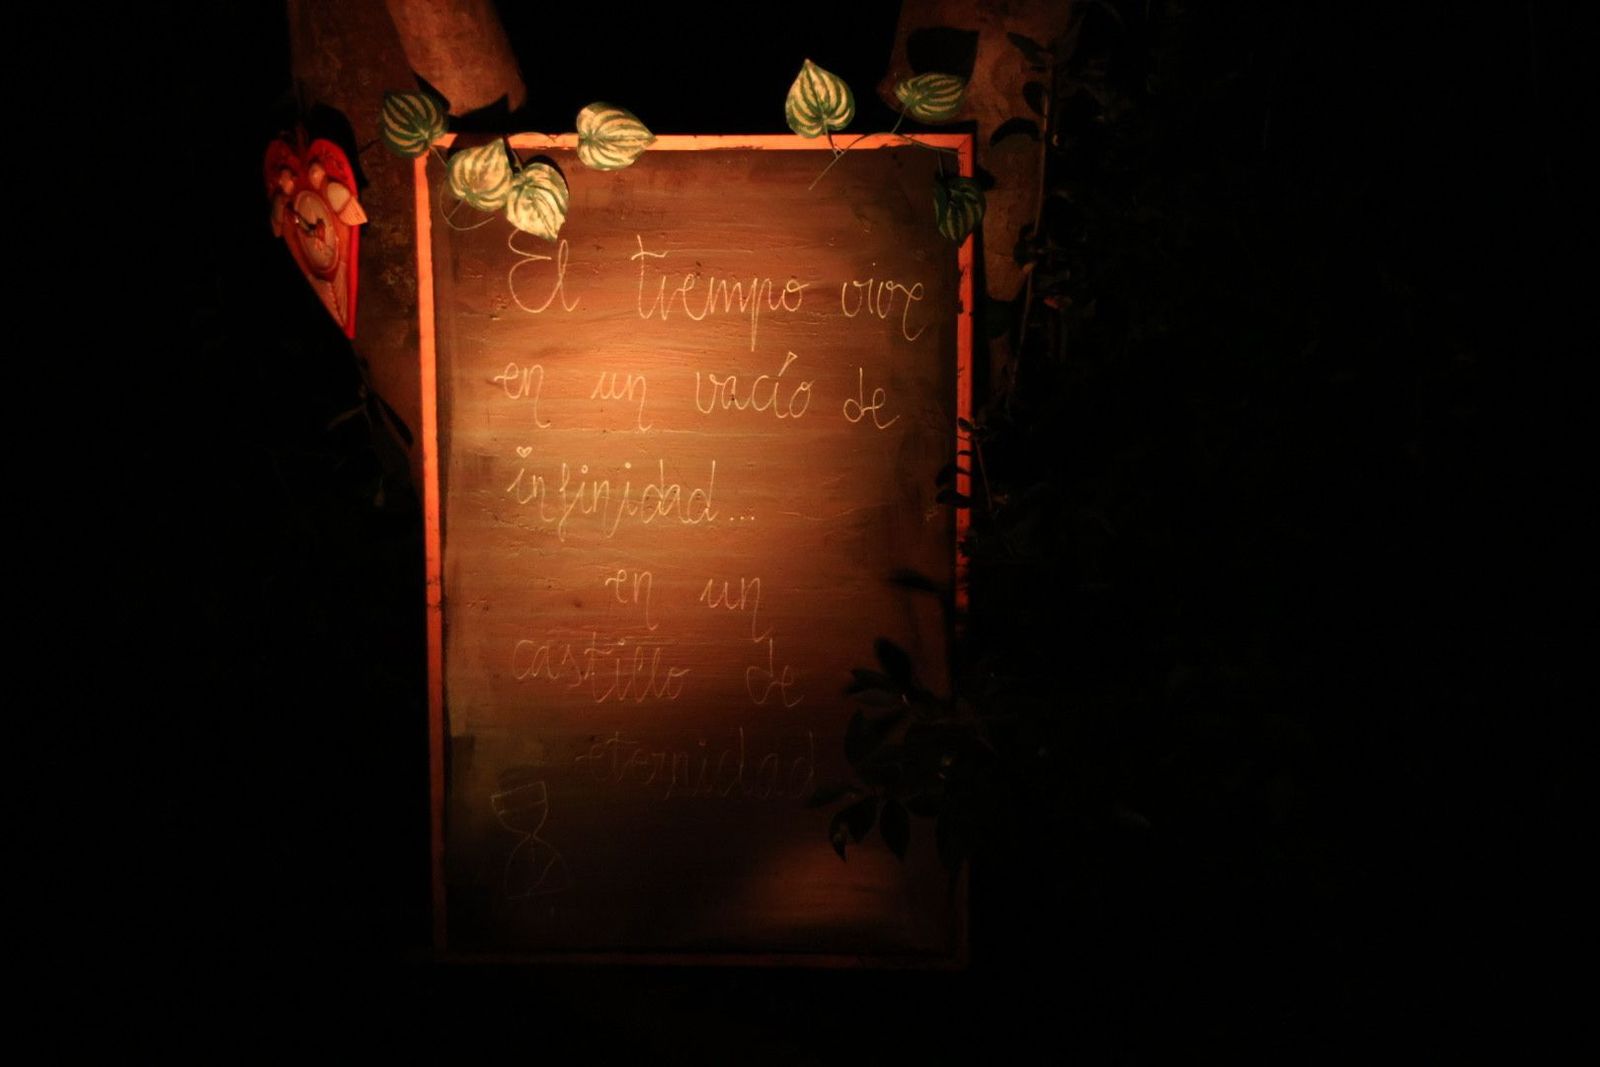 El tiempo vive
en un vacío de
infinidad...
en un
castillo de
eternidad